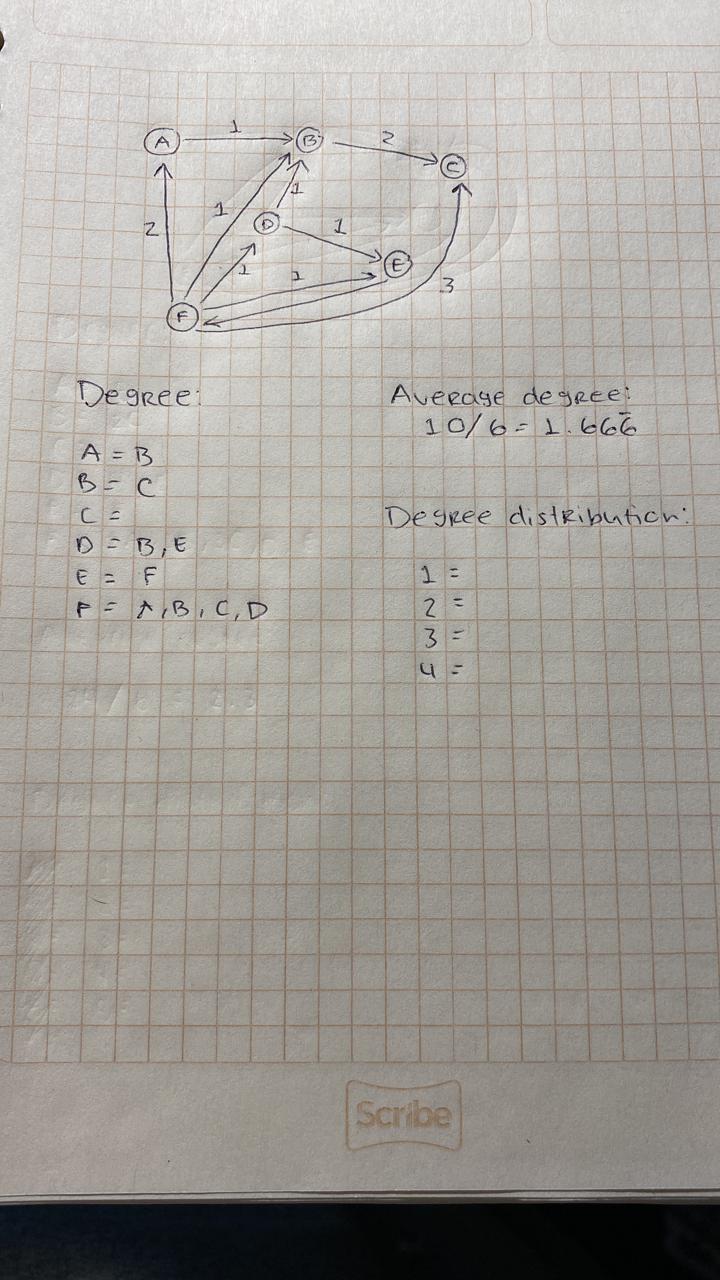 A 1 B 2 C
1
2 1 D 1
1 1 E
F 3
Degree:
A = B
B = C
C =
D = B, E
E = F
F = A, B, C, D
Average degree:
10/6 = 1.666̄
Degree distribution:
1 =
2 =
3 =
4 =
Scribe